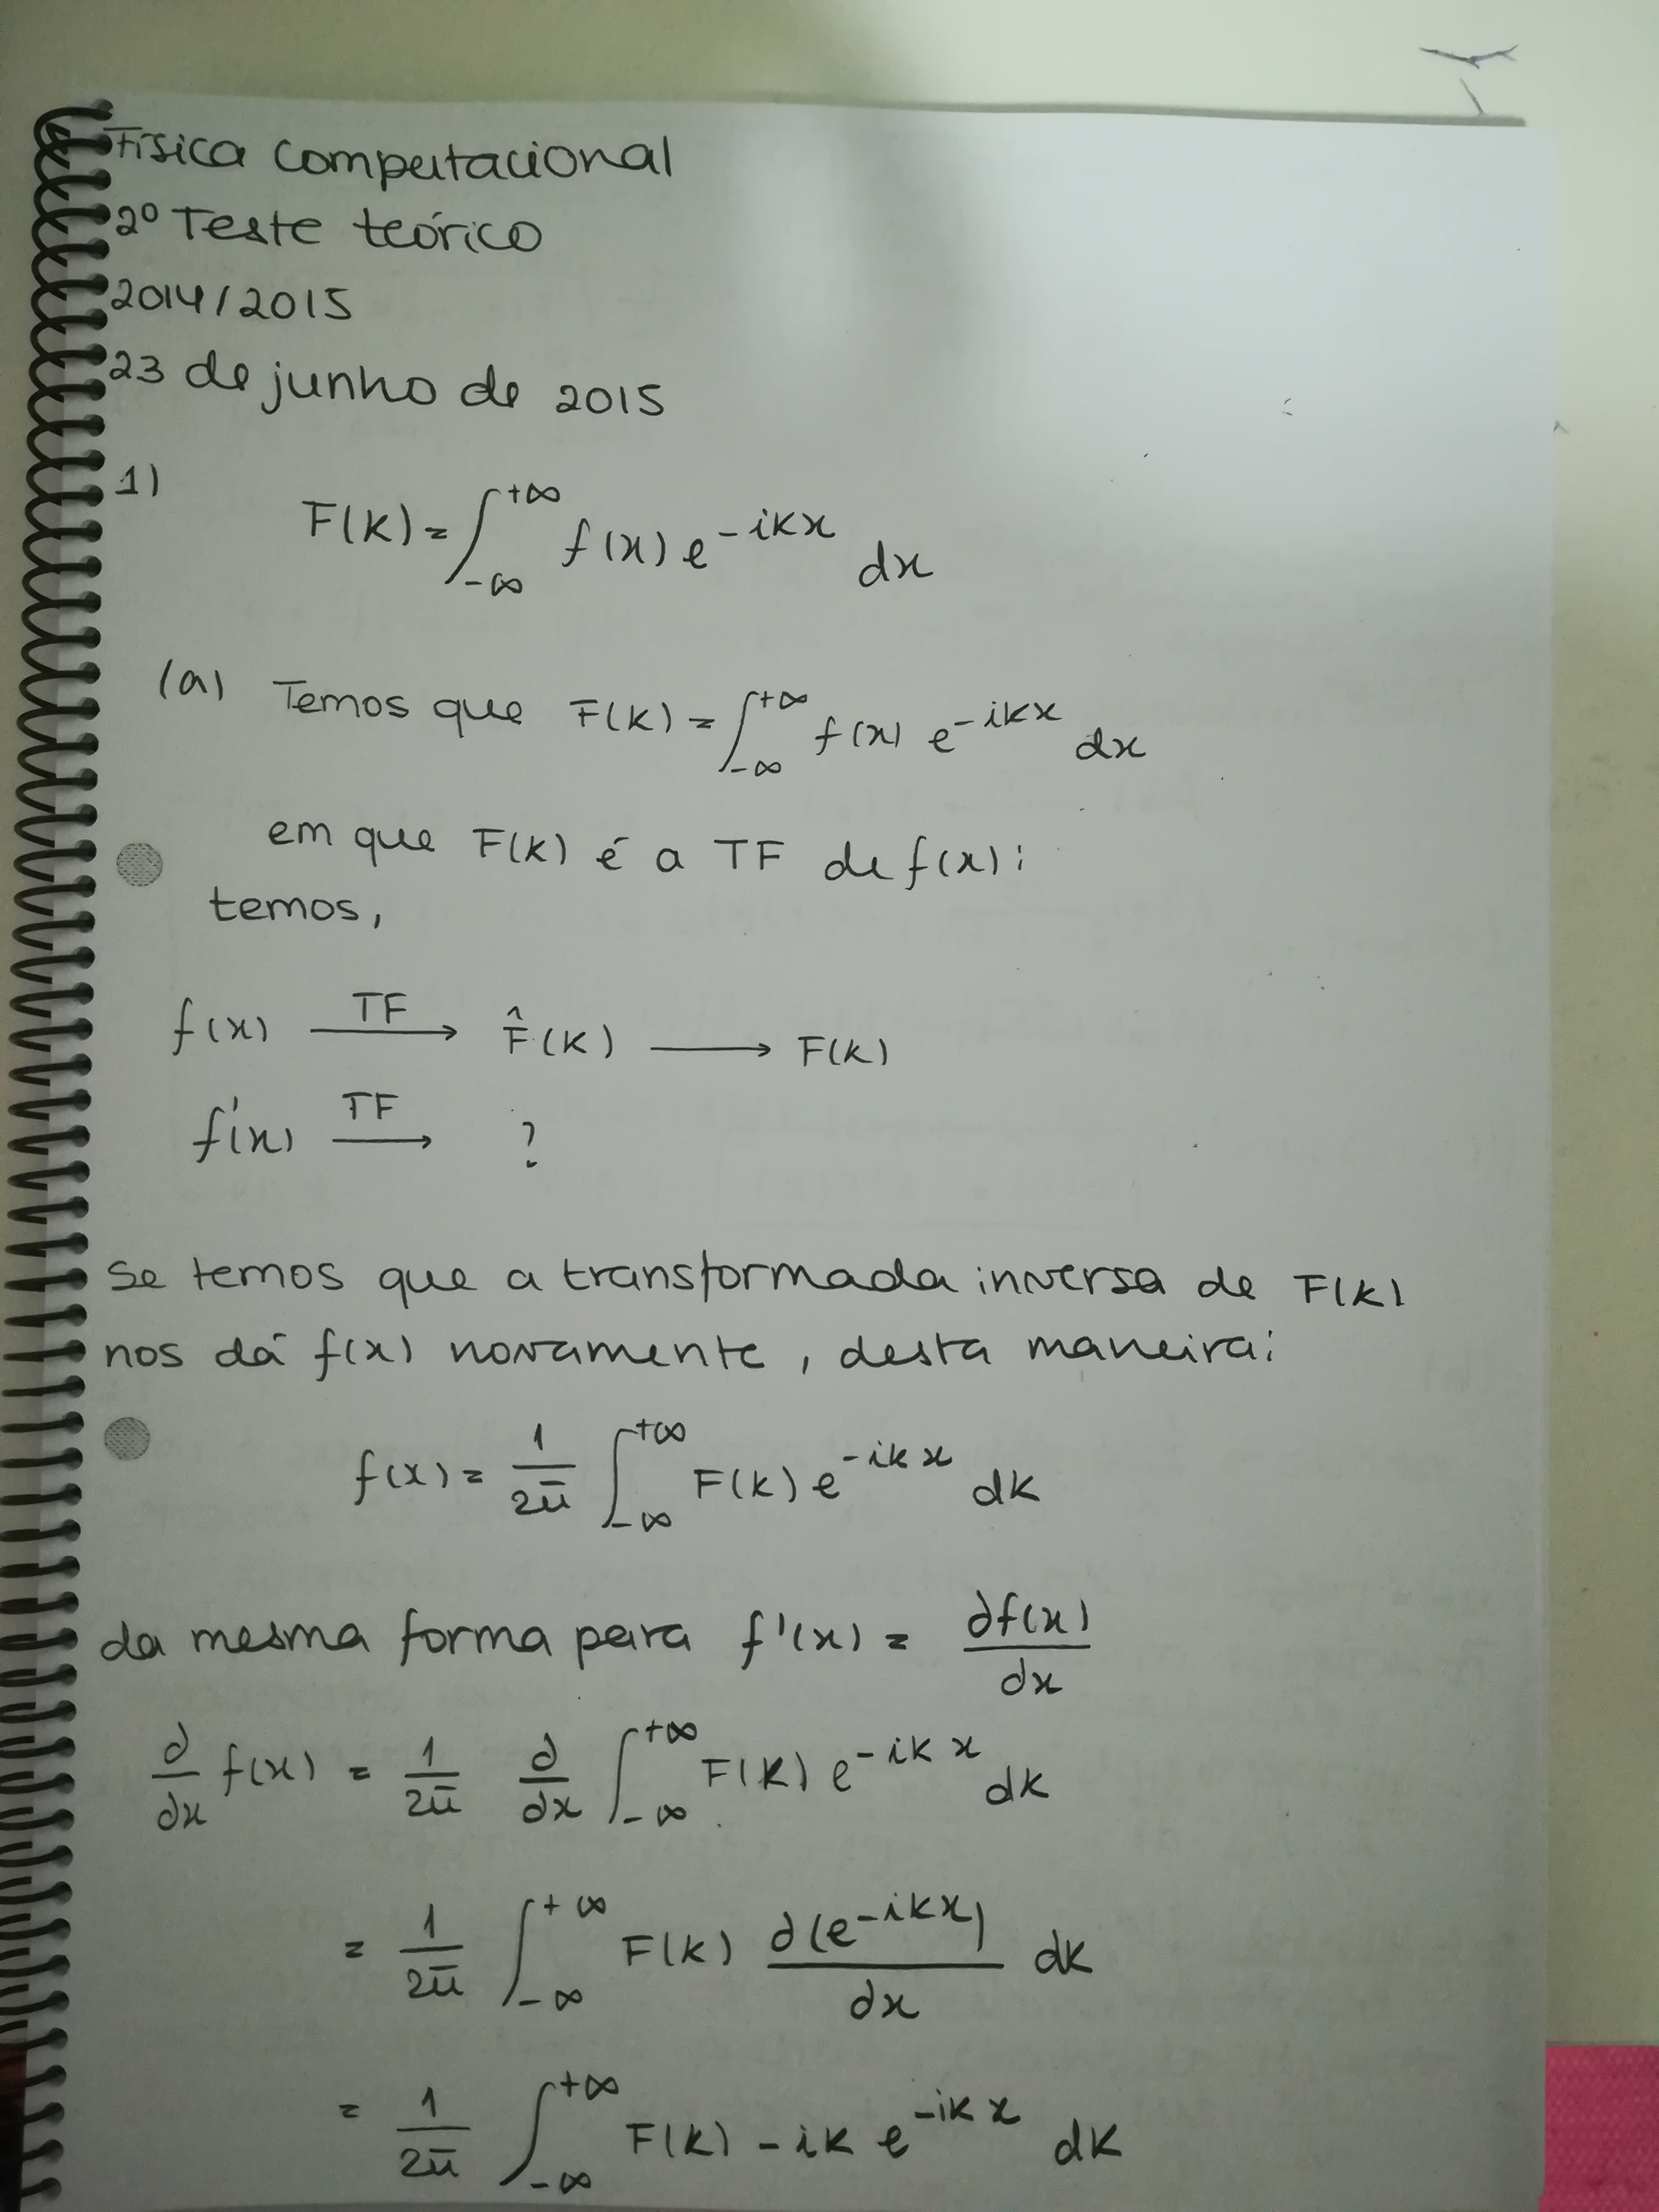 Física Computacional
2º Teste teórico
2014/2015
23 de junho de 2015
1)
F(k) = ∫_{-∞}^{+∞} f(x) e^{-ikx} dx
(a) Temos que F(k) = ∫_{-∞}^{+∞} f(x) e^{-ikx} dx
em que F(k) é a TF de f(x):
temos,
f(x) —TF→ F̂(k) ⟶ F(k)
f'(x) —TF→ ?
Se temos que a transformada inversa de F(k)
nos dá f(x) novamente, desta maneira:
f(x) = 1/2π ∫_{-∞}^{+∞} F(k) e^{-ikx} dk
da mesma forma para f'(x) = ∂f(x)/∂x
∂/∂x f(x) = 1/2π ∂/∂x ∫_{-∞}^{+∞} F(k) e^{-ikx} dk
= 1/2π ∫_{-∞}^{+∞} F(k) ∂(e^{-ikx})/∂x dk
= 1/2π ∫_{-∞}^{+∞} F(k) - ik e^{-ikx} dk